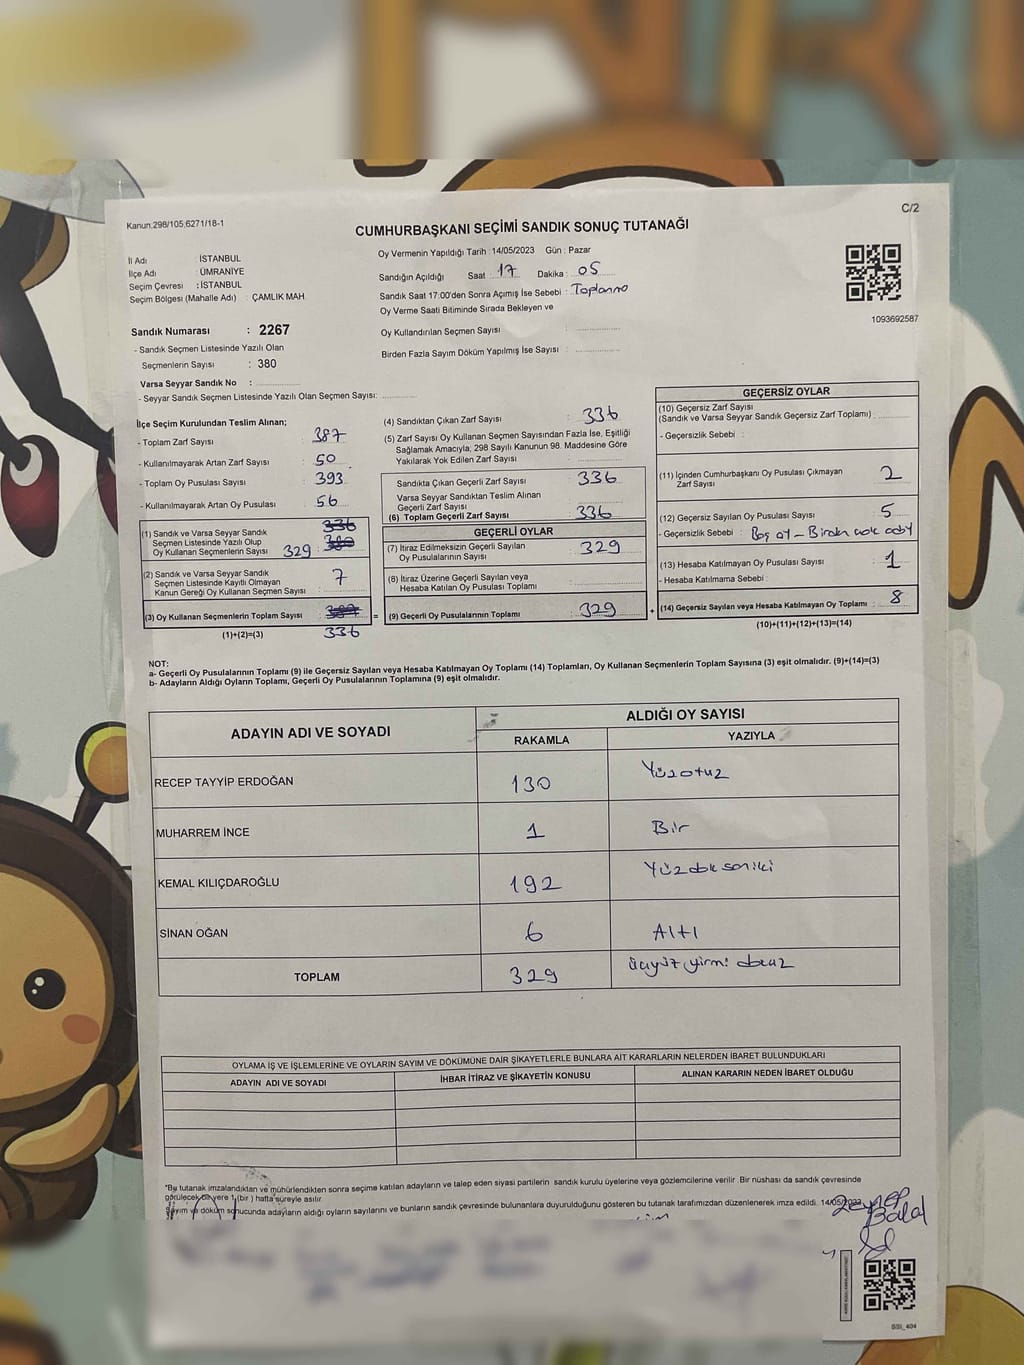 Kanun:298/105,6271/18-1
C/2
CUMHURBAŞKANI SEÇİMİ SANDIK SONUÇ TUTANAĞI
İl Adı : İSTANBUL
İlçe Adı : ÜMRANİYE
Seçim Çevresi : İSTANBUL
Seçim Bölgesi (Mahalle Adı) : ÇAMLIK MAH.
Oy Vermenin Yapıldığı Tarih : 14/05/2023 Gün : Pazar
Sandığın Açıldığı Saat : 17 Dakika : 05
Sandık Saat 17:00'den Sonra Açımış İse Sebebi :
Oy Verme Saati Bitiminde Sırada Bekleyen ve
Oy Kullandırılan Seçmen Sayısı :
Birden Fazla Sayım Döküm Yapılmış İse Sayısı :
1093692587
Sandık Numarası : 2267
- Sandık Seçmen Listesinde Yazılı Olan
Seçmenlerin Sayısı : 380
Varsa Seyyar Sandık No :
- Seyyar Sandık Seçmen Listesinde Yazılı Olan Seçmen Sayısı:
İlçe Seçim Kurulundan Teslim Alınan;
- Toplam Zarf Sayısı : 387
- Kullanılmayarak Artan Zarf Sayısı : 50
- Toplam Oy Pusulası Sayısı : 393
- Kullanılmayarak Artan Oy Pusulası : 56
(1) Sandık ve Varsa Seyyar Sandık 336
Seçmen Listesinde Yazılı Olup 380
Oy Kullanan Seçmenlerin Sayısı 329
(2) Sandık ve Varsa Seyyar Sandık
Seçmen Listesinde Kayıtlı Olmayan 7
Kanun Gereği Oy Kullanan Seçmen Sayısı
(3) Oy Kullanan Seçmenlerin Toplam Sayısı : 387 =
(1)+(2)=(3) 336
(4) Sandıktan Çıkan Zarf Sayısı : 336
(5) Zarf Sayısı Oy Kullanan Seçmen Sayısından Fazla İse, Eşitliği
Sağlamak Amacıyla; 298 Sayılı Kanunun 98. Maddesine Göre
Yakılarak Yok Edilen Zarf Sayısı :
Sandıkta Çıkan Geçerli Zarf Sayısı : 336
Varsa Seyyar Sandıktan Teslim Alınan
Geçerli Zarf Sayısı :
(6) Toplam Geçerli Zarf Sayısı : 336
GEÇERLİ OYLAR
(7) İtiraz Edilmeksizin Geçerli Sayılan
Oy Pusulalarının Sayısı : 329
(8) İtiraz Üzerine Geçerli Sayılan veya
Hesaba Katılan Oy Pusulası Toplamı :
(9) Geçerli Oy Pusulalarının Toplamı : 329 +
GEÇERSİZ OYLAR
(10) Geçersiz Zarf Sayısı
(Sandık ve Varsa Seyyar Sandık Geçersiz Zarf Toplamı) :
- Geçersizlik Sebebi :
(11) İçinden Cumhurbaşkanı Oy Pusulası Çıkmayan
Zarf Sayısı : 2
(12) Geçersiz Sayılan Oy Pusulası Sayısı : 5
- Geçersizlik Sebebi : Boş oy -
(13) Hesaba Katılmayan Oy Pusulası Sayısı : 1
- Hesaba Katılmama Sebebi :
(14) Geçersiz Sayılan veya Hesaba Katılmayan Oy Toplamı : 8
(10)+(11)+(12)+(13)=(14)
NOT:
a- Geçerli Oy Pusulalarının Toplamı (9) ile Geçersiz Sayılan veya Hesaba Katılmayan Oy Toplamı (14) Toplamları, Oy Kullanan Seçmenlerin Toplam Sayısına (3) eşit olmalıdır. (9)+(14)=(3)
b- Adayların Aldığı Oyların Toplamı, Geçerli Oy Pusulalarının Toplamına (9) eşit olmalıdır.
ADAYIN ADI VE SOYADI
ALDIĞI OY SAYISI
RAKAMLA YAZIYLA
RECEP TAYYİP ERDOĞAN 130 Yüzotuz
MUHARREM İNCE 1 Bir
KEMAL KILIÇDAROĞLU 192 Yüzdoksaniki
SİNAN OĞAN 6 Altı
TOPLAM 329 üçyüzyirmi dokuz
OYLAMA İŞ VE İŞLEMLERİNE VE OYLARIN SAYIM VE DÖKÜMÜNE DAİR ŞİKAYETLERLE BUNLARA AİT KARARLARIN NELERDEN İBARET BULUNDUKLARI
ADAYIN ADI VE SOYADI İHBAR İTİRAZ VE ŞİKAYETİN KONUSU ALINAN KARARIN NEDEN İBARET OLDUĞU
*Bu tutanak imzalandıktan ve mühürlendikten sonra seçime katılan adayların ve talep eden siyasi partilerin sandık kurulu üyelerine veya gözlemcilerine verilir. Bir nüshası da sandık çevresinde
görülecek bir yere 1 (bir) hafta süreyle asılır.
Sayım ve döküm sonucunda adayların aldığı oyların sayılarını ve bunların sandık çevresinde bulunanlara duyurulduğunu gösteren bu tutanak tarafımızdan düzenlenerek imza edildi. 14/05/2023
Zeynep
Balal